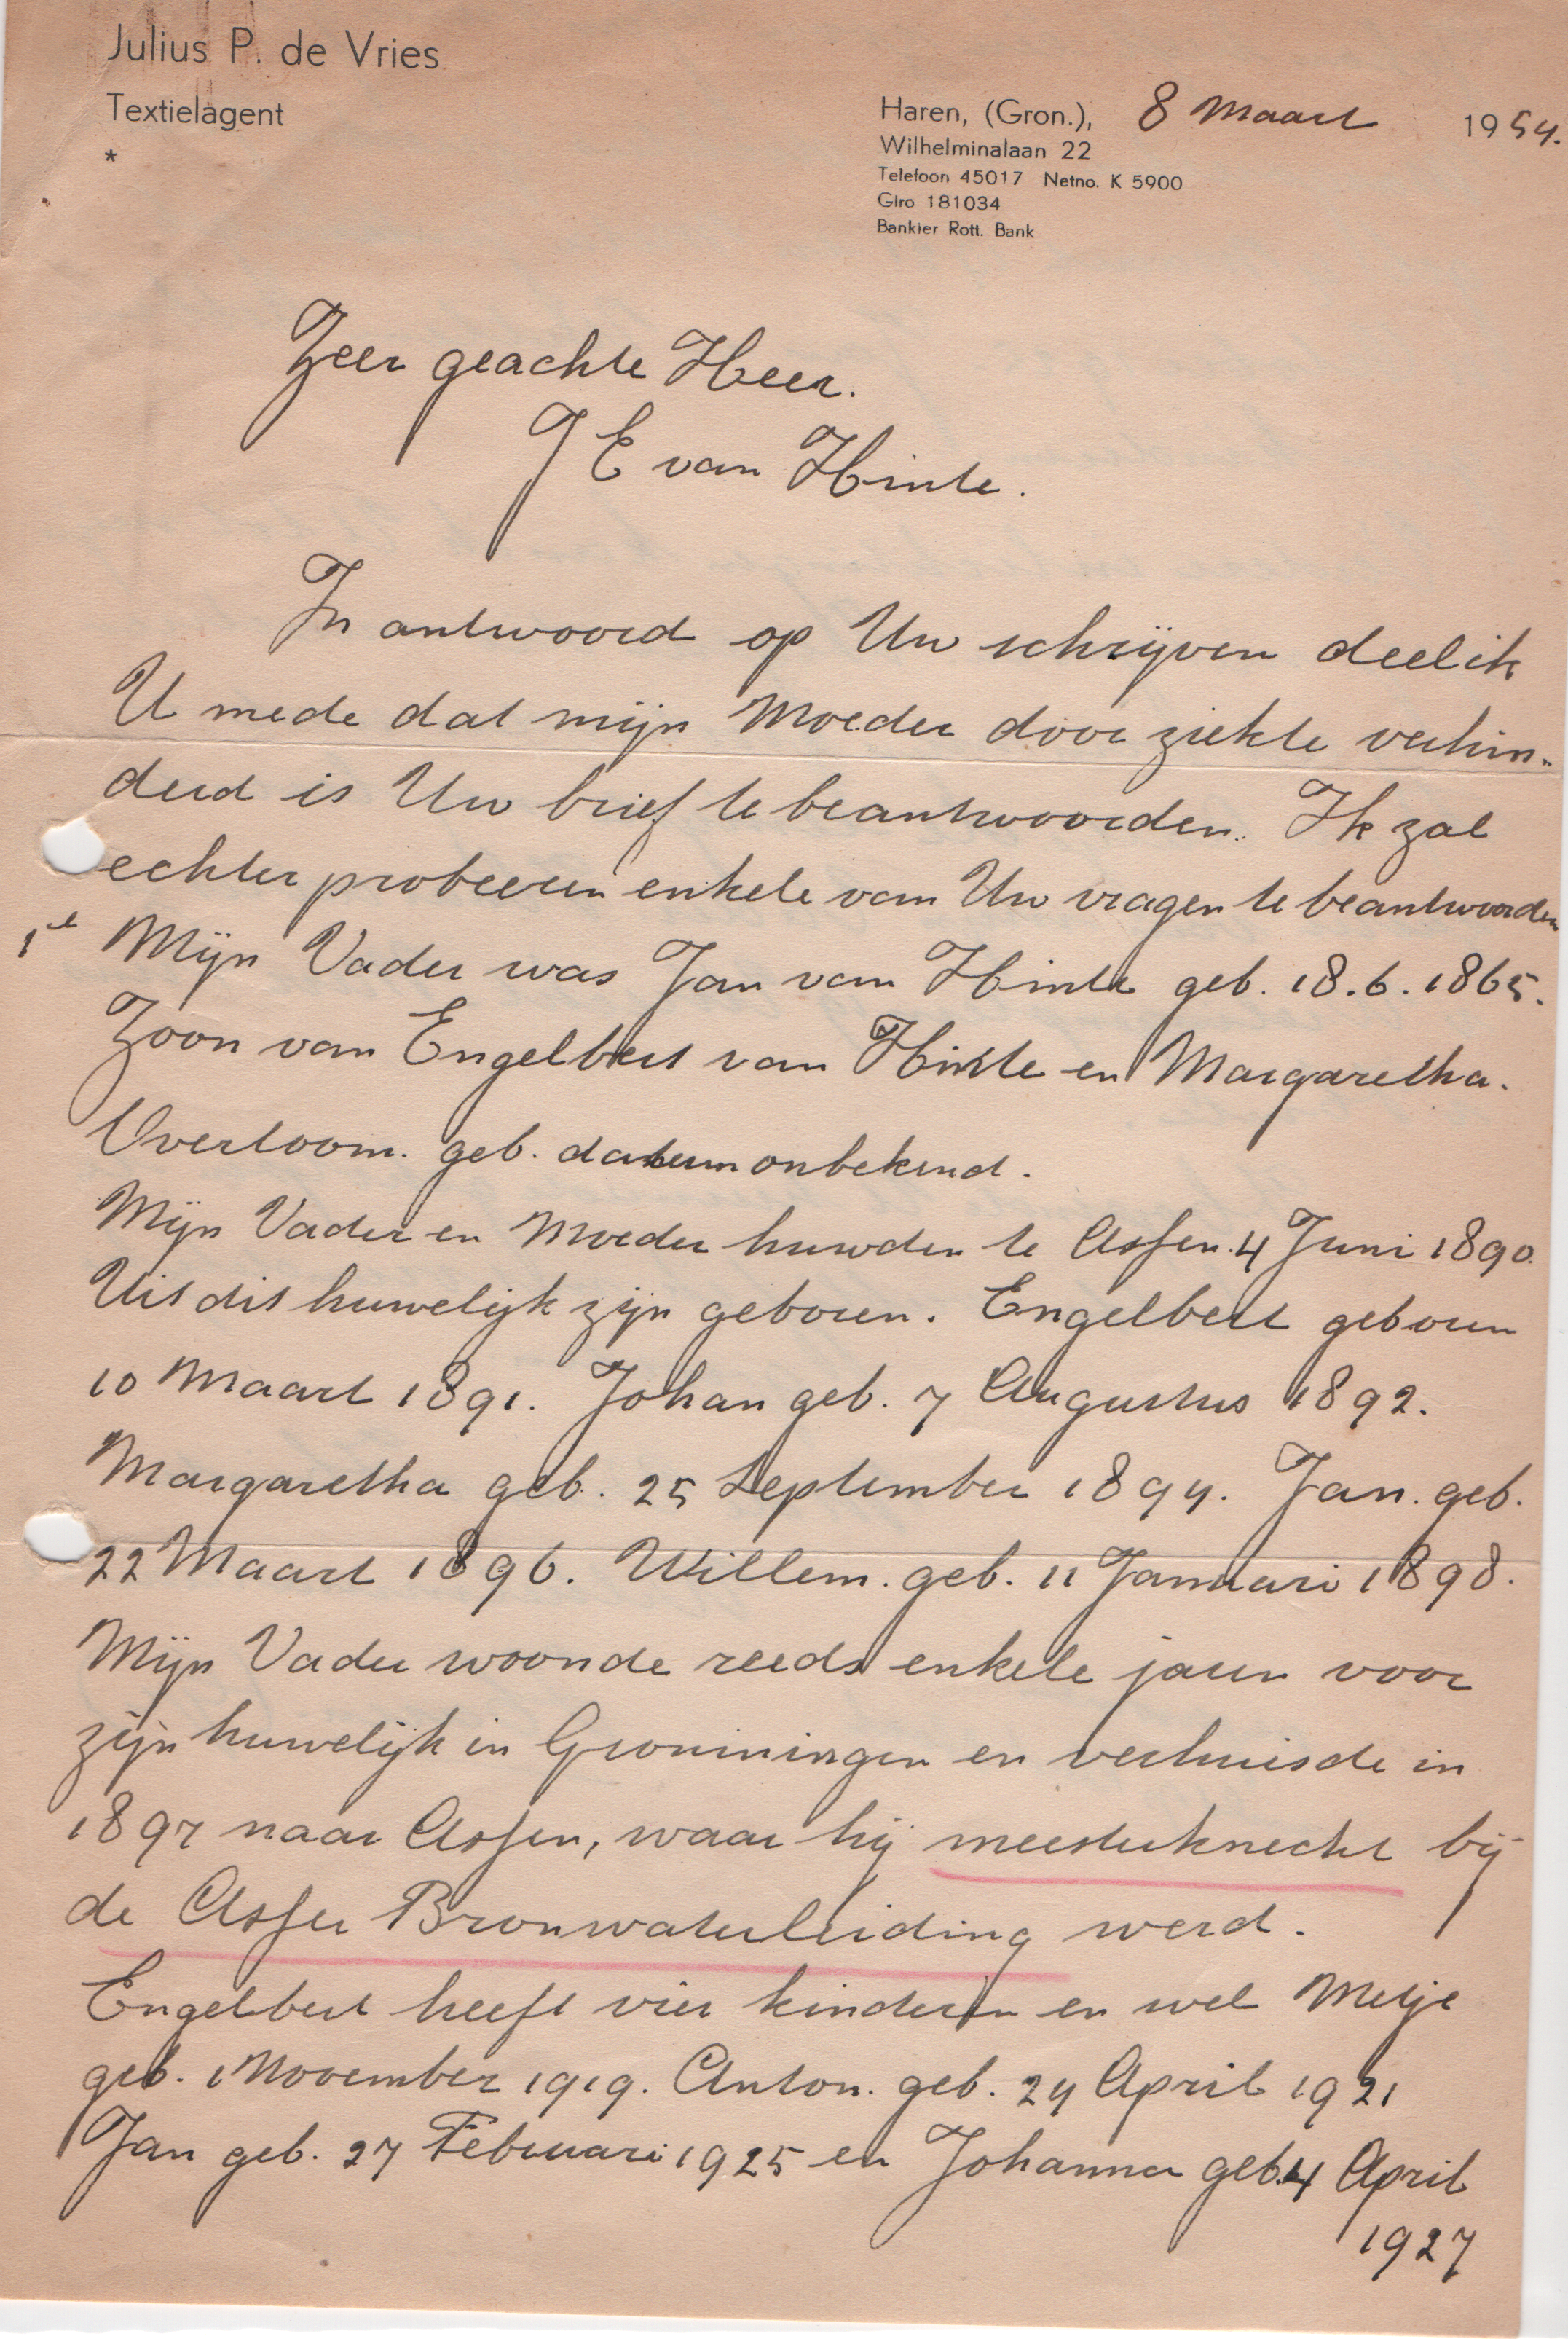 Julius P. de Vries
Textielagent
*
Haren, (Gron.), 8 Maart 1954.
Wilhelminalaan 22
Telefoon 45017 Netno. K 5900
Giro 181034
Bankier Rott. Bank
Zeer geachte Heer.
J E van Hinte.
In antwoord op Uw schrijven deel ik
U mede dat mijn Moeder door ziekte verhin-
derd is Uw brief te beantwoorden. Ik zal
echter probeeren enkele van Uw vragen te beantwoorden
1e Mijn Vader was Jan van Hinte geb. 18.6.1865.
Zoon van Engelbert van Hinte en Margaretha.
Overtoom. geb. datum onbekend.
Mijn Vader en Moeder huwden te Assen. 4 Juni 1890.
Uit dit huwelijk zijn geboren. Engelbert geboren
10 Maart 1891. Johan geb. 7 Augustus 1892.
Margaretha geb. 25 September 1894. Jan. geb.
22 Maart 1896. Willem. geb. 11 Januari 1898.
Mijn Vader woonde reeds enkele jaren voor
zijn huwelijk in Groningen en verhuisde in
1897 naar Assen, waar hij meesterknecht bij
de Asser Bronwaterleiding werd.
Engelbert heeft vier kinderen en wel Metje
geb. 1 November 1919. Anton. geb. 24 April 1921
Jan geb. 27 Februari 1925 en Johanna geb. 4 April
1927